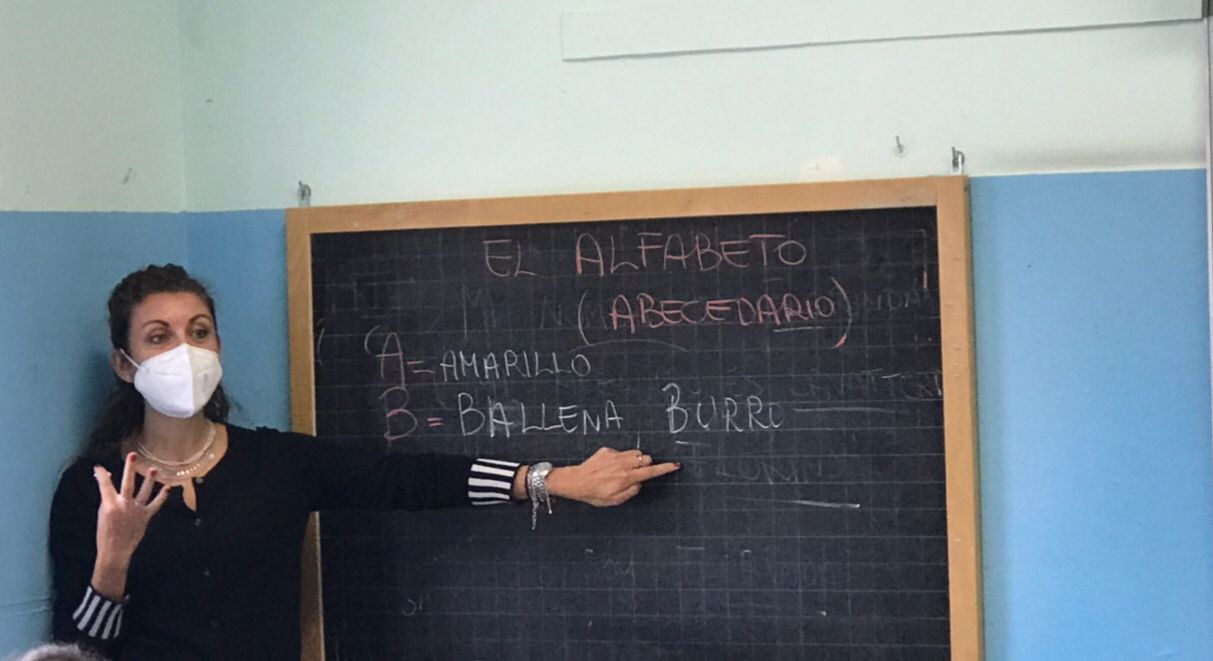 EL ALFABETO
(ABECEDARIO)
A = AMARILLO
B = BALLENA, BURRO